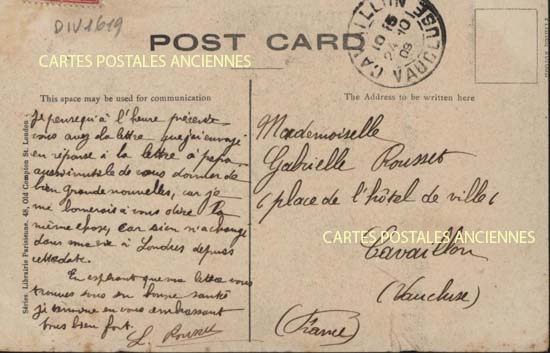 DIV1619
CARTES POSTALES ANCIENNES
POST CARD
CAVAILLON
10 15
24 10
09
VAUCLUSE
This space may be used for communication
The Address to be written here
Je pense qu'à l'heure présente
vous avez la lettre que j'ai envoyé
en réponse à la lettre à papa
aussi inutile de vous donner de
bien grande nouvelles, car je
me bornerais à vous dire la
même chose, car rien n'a changé
dans ma vie à Londres depuis
cette date.
En espérant que ma lettre vous
trouvera tous en bonne santé
je termine en vous embrassant
tous bien fort.
L. Rousset
Mademoiselle
Gabrielle Rousset
6 place de l'hôtel de ville 6
CARTES POSTALES ANCIENNES
Cavaillon
(Vaucluse)
(France)
Séries. Librairie Parisienne, 48, Old Compton St. London.